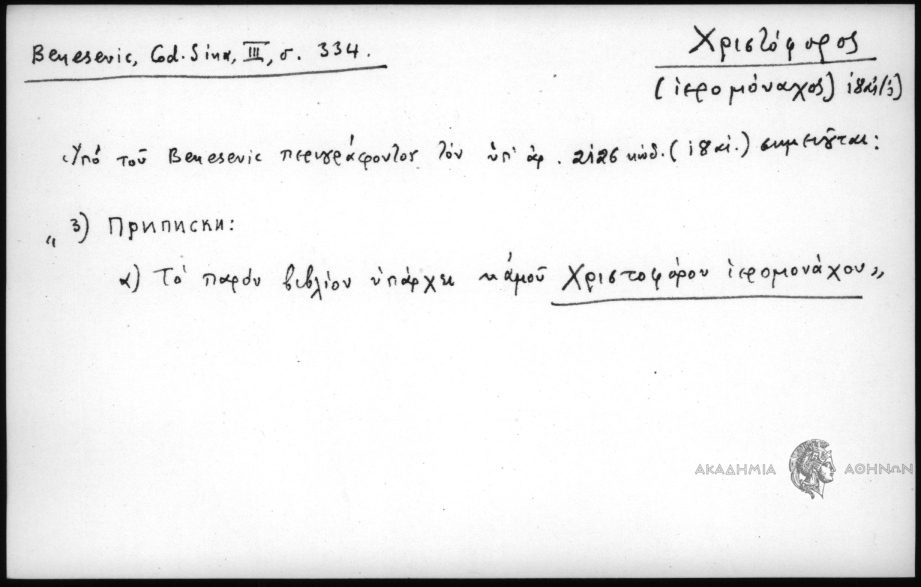 Benesevic, Cod. Sina, III, σ. 334.
Χριστόφορος
(ἱερομόναχος) ιθ αἰ
Ὑπό τοῦ Benesevic περιγράφοντος τόν ὑπ' ἀρ. 2126 κώδ. (ιθ αἰ.) σημειοῦται:
„ 3) Приписки:
α) Τό παρόν βιβλίον ὑπάρχει κἀμοῦ Χριστοφόρου ἱερομονάχου”
ΑΚΑΔΗΜΙΑ ΑΘΗΝΩΝ